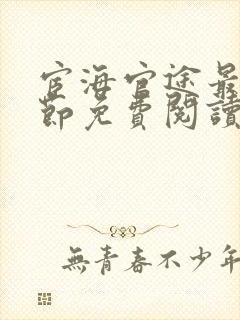 宦海官途最
節免費閱讀
無青春不少年